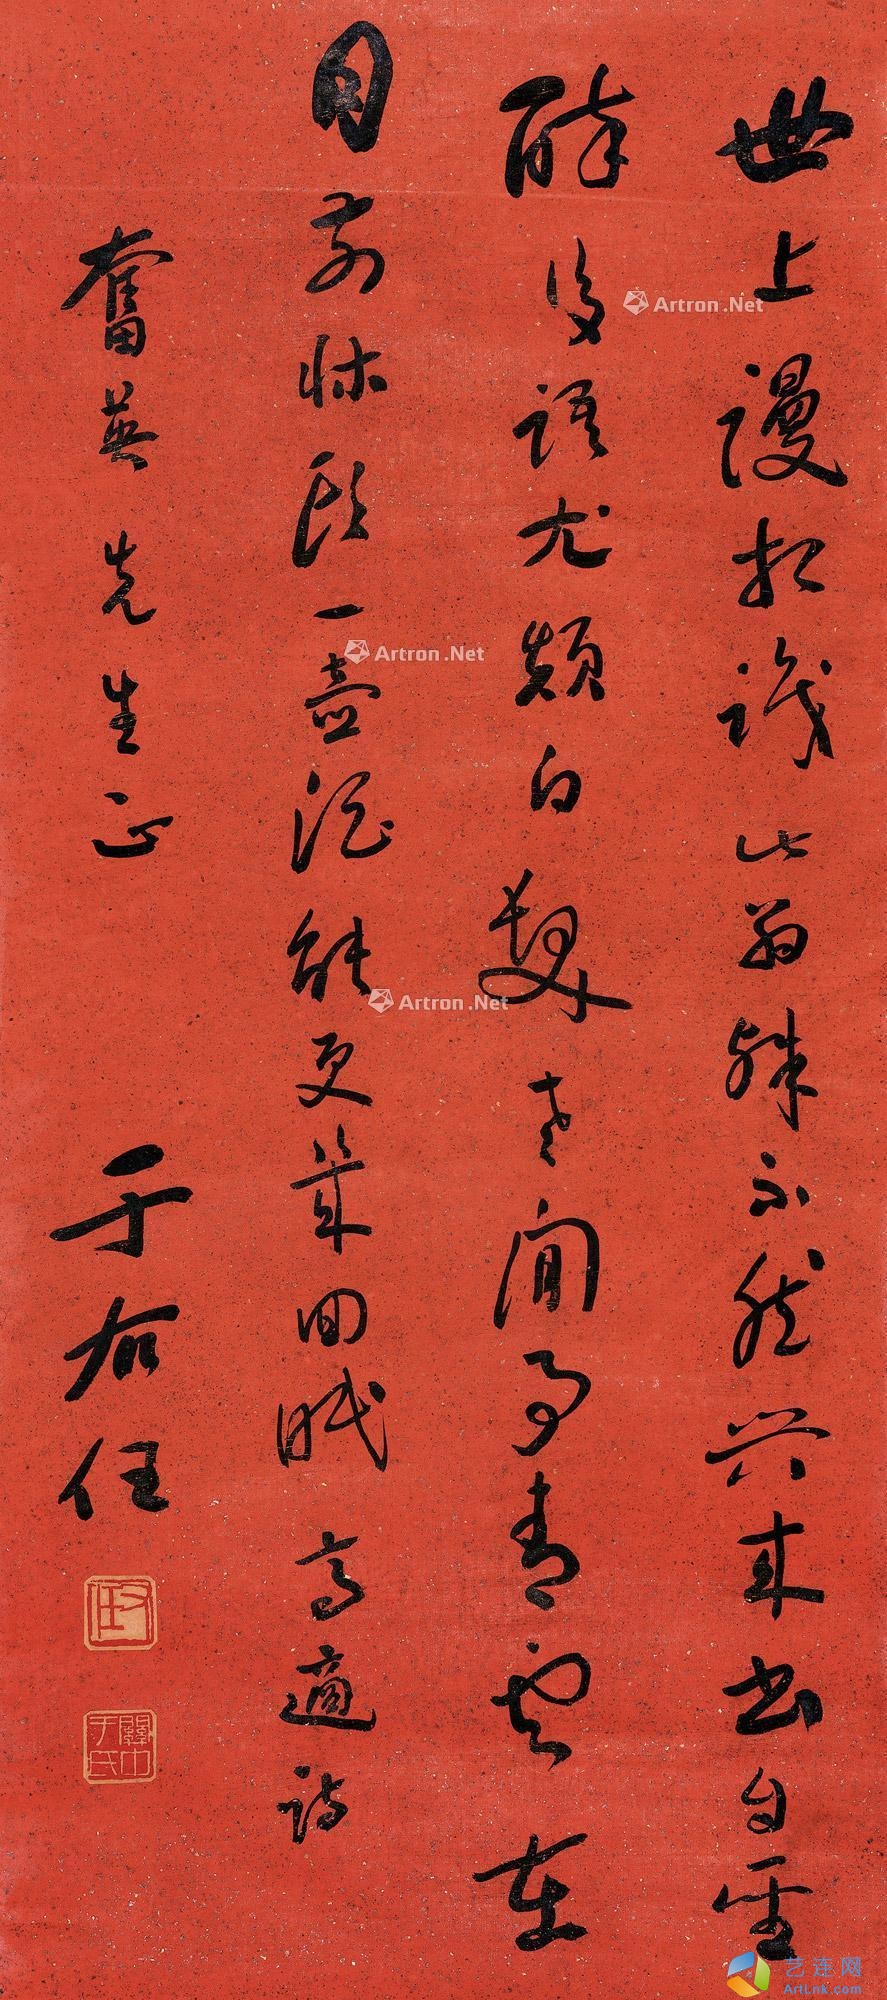 世上謾相識此翁殊不然興來書自聖
醉後語尤顛白髮老閒事青雲在
目前牀頭一壺酒能更幾回眠 高適詩
奮英先生正
于右任
右任
關中于氏
Artron.Net
Artron.Net
Artron.Net
艺连网
ArtLnk.com